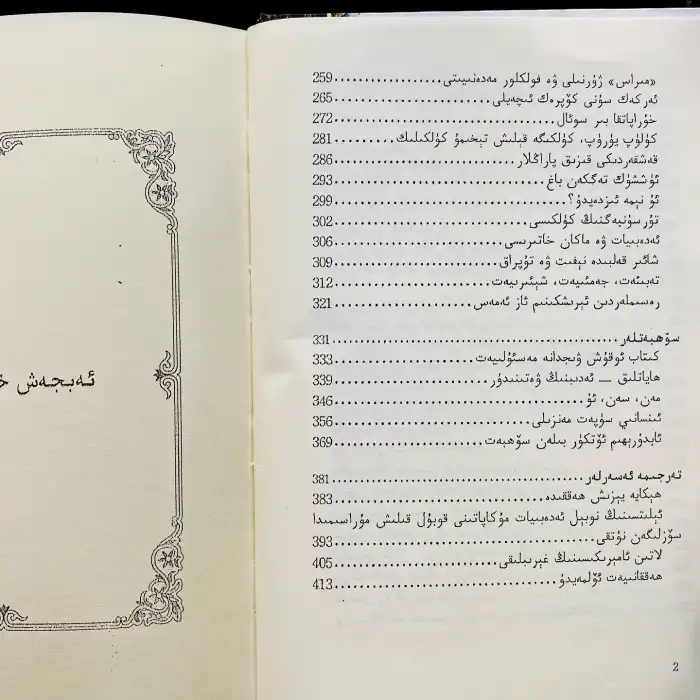 «مىراس» ژۇرنىلى ۋە فولكلور مەدەنىيىتى..................259
ئەركەك سۇنى كۆپرەك ئىچەيلى..........................265
خۇراپاتقا بىر سوئال.................................272
كۈلۈپ يۈرۈپ، كۈلكىگە قېلىش تېخىمۇ كۈلكىلىك..........281
قەشقەردىكى قىزىق پاراڭلار...........................286
ئۈششۈك تەگكەن باغ...................................293
ئۇ نېمە ئىزدەيدۇ؟...................................299
تۇرسۇنبەگنىڭ كۈلكىسى................................302
ئەدەبىيات ۋە ماكان خاتىرىسى.........................306
شائىر قەلبىدە نېفىت ۋە تۇپراق.......................309
تەبىئەت، جەمئىيەت، شېئىرىيەت........................312
رەسىملەردىن ئېرىشكىنىم ئاز ئەمەس....................321
سۆھبەتلەر...........................................331
كىتاب ئوقۇش ۋىجدانە مەسئۇلىيەت......................333
ھاياتلىق — ئەدىبنىڭ ۋەتىنىدۇر.......................339
مەن، سەن، ئۇ........................................346
ئىنسانىي سۈپەت مەنزىلى..............................356
ئابدۇرېھىم ئۆتكۈر بىلەن سۆھبەت......................369
تەرجىمە ئەسەرلەر....................................381
ھېكايە يېزىش ھەققىدە................................383
ئېلىتىسنىڭ نوبېل ئەدەبىيات مۇكاپاتىنى قوبۇل قىلىش مۇراسىمىدا
سۆزلىگەن نۇتقى......................................393
لاتىن ئامېرىكىسىنىڭ غېرىبلىقى.......................405
ھەققانىيەت ئۆلمەيدۇ.................................413
2
ئەبجەش